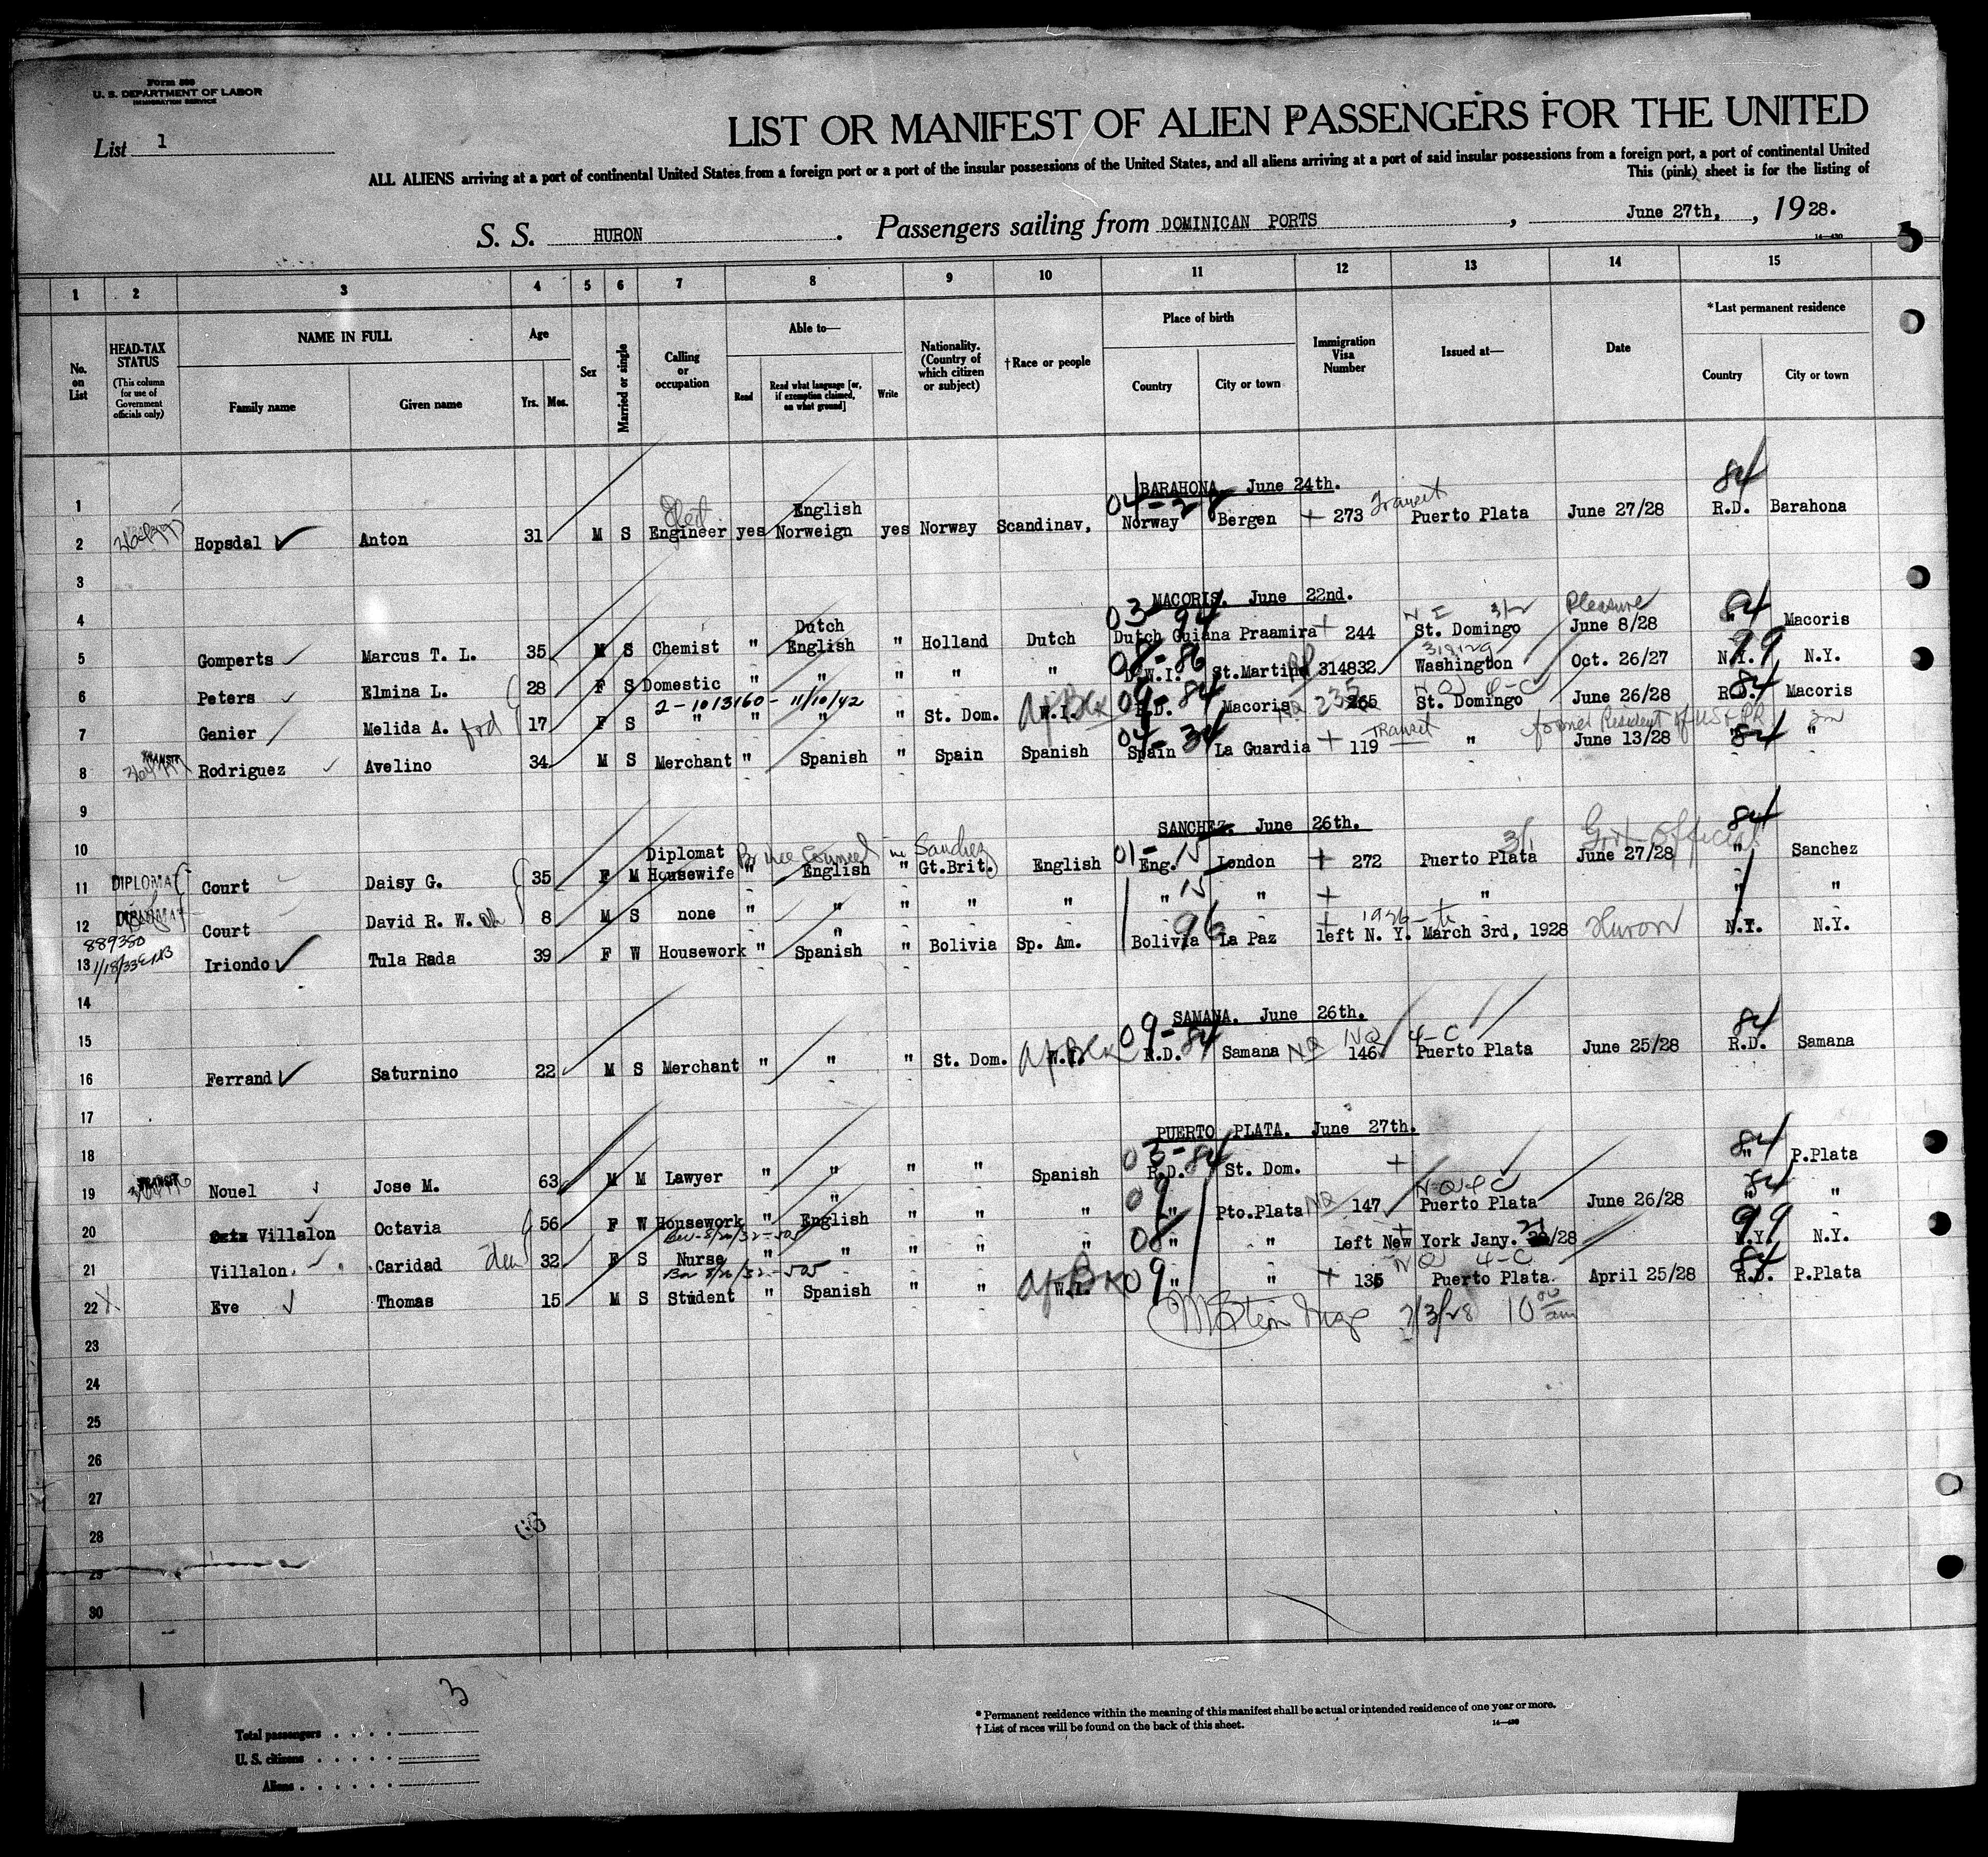 Form 500
U. S. DEPARTMENT OF LABOR
IMMIGRATION SERVICE
List 1
LIST OR MANIFEST OF ALIEN PASSENGERS FOR THE UNITED
ALL ALIENS arriving at a port of continental United States from a foreign port or a port of the insular possessions of the United States, and all aliens arriving at a port of said insular possessions from a foreign port, a port of continental United
This (pink) sheet is for the listing of
S. S. HURON. Passengers sailing from DOMINICAN PORTS, June 27th, , 1928.
14—430
1 2 3 4 5 6 7 8 9 10 11 12 13 14 15
No. on List
HEAD-TAX STATUS (This column for use of Government officials only)
NAME IN FULL
Family name Given name
Age
Yrs. Mos.
Sex
Married or single
Calling or occupation
Able to—
Read Read what language [or, if exemption claimed, on what ground] Write
Nationality. (Country of which citizen or subject)
†Race or people
Place of birth
Country City or town
Immigration Visa Number
Issued at—
Date
*Last permanent residence
Country City or town
1 BARAHONA June 24th. 84
Elect English 04-28 Transit
2 Hopsdal Anton 31 M S Engineer yes Norweign yes Norway Scandinav. Norway Bergen + 273 Puerto Plata June 27/28 R.D. Barahona
3
4 MACORIS. June 22nd.
Dutch 03-94 3/2 Pleasure 84
5 Gomperts Marcus T. L. 35 M S Chemist " English " Holland Dutch Dutch Guiana Praamira + 244 St. Domingo June 8/28 " Macoris
08-86 99
6 Peters Elmina L. 28 F S Domestic " " " " " D.W.I. St.Martins 314832 Washington Oct. 26/27 N.Y. N.Y.
2-1013160-11/10/42 09-84 NQ 4-C 84
7 Ganier Melida A. 17 F S " " " " St. Dom. Af Blk W.I. R.D. Macoris NQ 235 265 St. Domingo June 26/28 R.D. Macoris
TRANSIT 04-34 Transit former Resident of US & PR
8 Rodriguez Avelino 34 M S Merchant " Spanish " Spain Spanish Spain La Guardia + 119 " June 13/28 " 84 "
9
10 SANCHEZ. June 26th. 84
Diplomat Sanchez 01-15 3/1 Gvt. Official
11 DIPLOMAT Court Daisy G. 35 F M Housewife " English " Gt.Brit. English Eng. London + 272 Puerto Plata June 27/28 " Sanchez
12 DIPLOMAT Court David R. W. 8 M S none " " " " " " 15 " + " " "
889380 96 1926
13 1/18/33 Iriondo Tula Rada 39 F W Housework " Spanish " Bolivia Sp. Am. Bolivia La Paz left N. Y. March 3rd, 1928 Huron N.Y. N.Y.
14
15 SAMANA. June 26th. 84
09-84 NQ 4-C
16 Ferrand Saturnino 22 M S Merchant " " " St. Dom. Af Blk W.I. R.D. Samana NQ 146 Puerto Plata June 25/28 R.D. Samana
17
18 PUERTO PLATA. June 27th.
TRANSIT 03-84 84
19 Nouel Jose M. 63 M M Lawyer " " " " Spanish R.D. St. Dom. + " P.Plata
09 NQ 4C 84
20 Villalon Octavia 56 F W Housework " English " " " " Pto.Plata NQ 147 Puerto Plata June 26/28 " "
8/20/32-505 08 99
21 Villalon Caridad 32 F S Nurse " " " " " " " Left New York Jany. 21/28 N.Y. N.Y.
8/20/32-505 NQ 4-C 84
22 Eve Thomas 15 M S Student " Spanish " " Af Blk W.I. 09 " " + 135 Puerto Plata April 25/28 R.D. P.Plata
Stein Insp 7/3/28 10 00 am
23
24
25
26
27
28
29
30
1 3
Total passengers
U. S. citizens
Aliens
* Permanent residence within the meaning of this manifest shall be actual or intended residence of one year or more.
† List of races will be found on the back of this sheet.
14—430